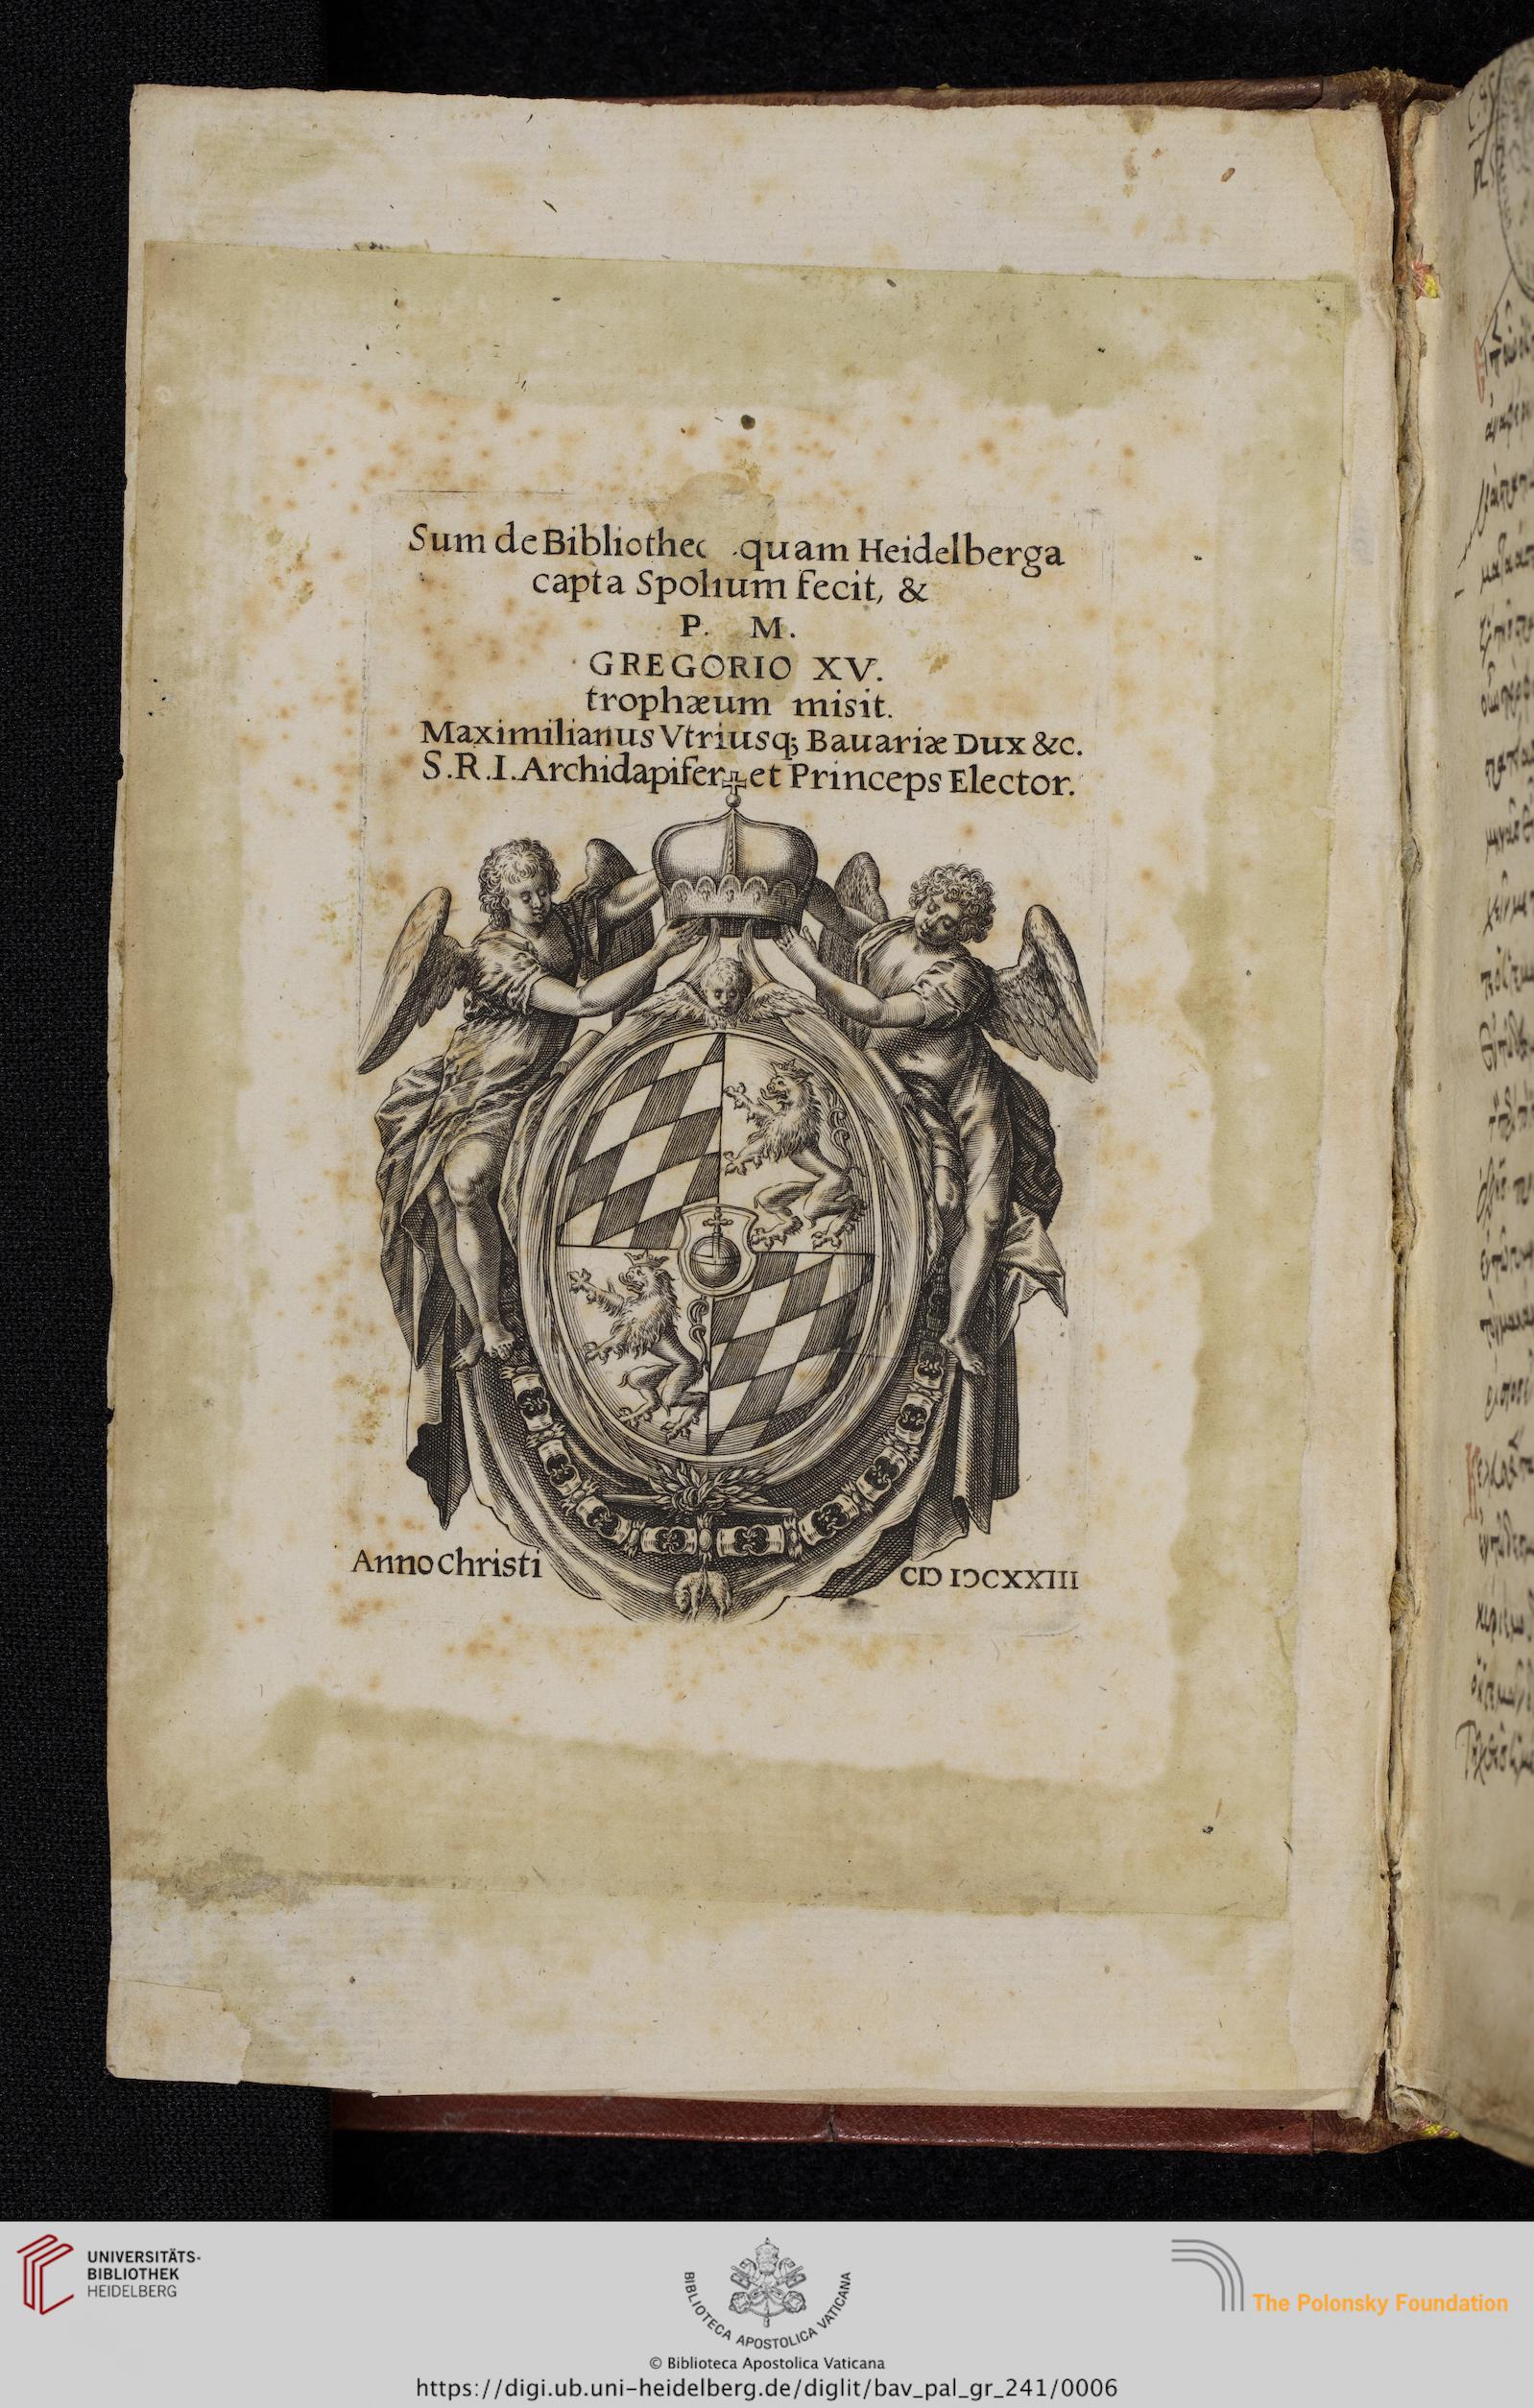 Sum de Bibliothec quam Heidelberga
capta Spolium fecit, &
P. M.
GREGORIO XV.
trophæum misit.
Maximilianus Vtriusq; Bauariæ Dux &c.
S.R.I. Archidapifer et Princeps Elector.
Anno Christi
CIↃ IↃCXXIII
UNIVERSITÄTS-
BIBLIOTHEK
HEIDELBERG
BIBLIOTECA APOSTOLICA VATICANA
The Polonsky Foundation
© Biblioteca Apostolica Vaticana
https://digi.ub.uni-heidelberg.de/diglit/bav_pal_gr_241/0006